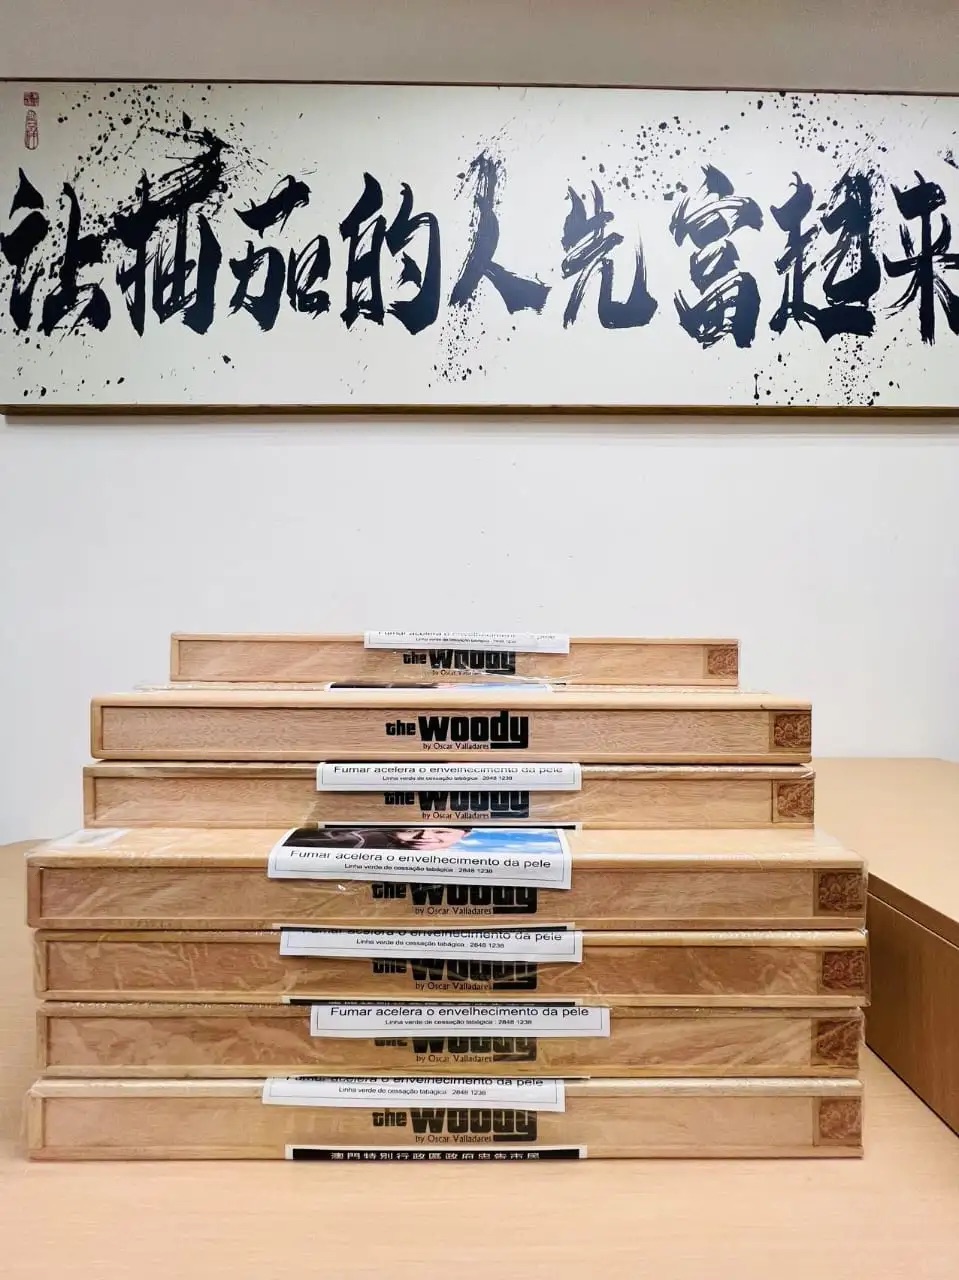 让抽茄的人先富起来
Fumar acelera o envelhecimento da pele
Linha verde de cessação tabágica : 2848 1238
the woody
by Oscar Valladares
the woody
by Oscar Valladares
Fumar acelera o envelhecimento da pele
Linha verde de cessação tabágica : 2848 1238
the woody
by Oscar Valladares
Fumar acelera o envelhecimento da pele
Linha verde de cessação tabágica : 2848 1238
the woody
by Oscar Valladares
Fumar acelera o envelhecimento da pele
Linha verde de cessação tabágica : 2848 1238
the woody
by Oscar Valladares
Fumar acelera o envelhecimento da pele
Linha verde de cessação tabágica : 2848 1238
the woody
by Oscar Valladares
Fumar acelera o envelhecimento da pele
Linha verde de cessação tabágica : 2848 1238
the woody
by Oscar Valladares
澳門特別行政區政府忠告市民